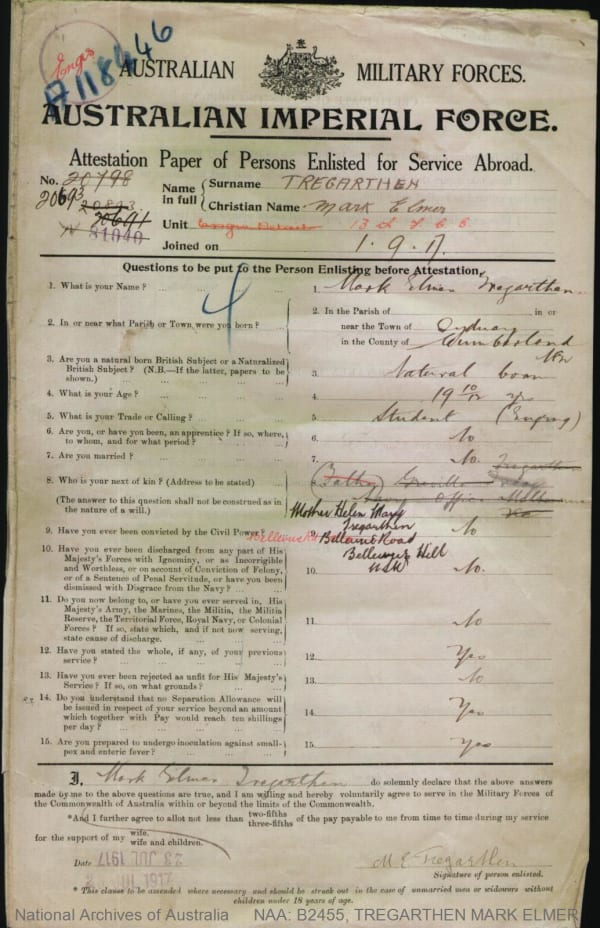 Engrs
A118446
AUSTRALIAN MILITARY FORCES.
AUSTRALIAN IMPERIAL FORCE.
Attestation Paper of Persons Enlisted for Service Abroad.
No. 20798
20693
20691
Name in full { Surname TREGARTHEN
Christian Name Mark Elmer
Unit
Joined on 1.9.17.
Questions to be put to the Person Enlisting before Attestation.
1. What is your Name? ... ... 1. Mark Elmer Tregarthen
2. In or near what Parish or Town were you born? ... 2. In the Parish of in or
near the Town of Sydney
in the County of Cumberland
NSW
3. Are you a natural born British Subject or a Naturalized British Subject? (N.B.—If the latter, papers to be shown.) 3. Natural born
4. What is your Age? ... ... 4. 19 10/12 yrs
5. What is your Trade or Calling? ... ... 5. Student (Engrng)
6. Are you, or have you been, an apprentice? If so, where, to whom, and for what period? ... 6. No
7. Are you married? ... ... 7. No.
8. Who is your next of kin? (Address to be stated) ... 8. (Father) Greville Tregarthen
Navy Office Melbourne
Vic
(The answer to this question shall not be construed as in the nature of a will.) Mother Helen Mary
Tregarthen
Bellevue Road
Bellevue Hill
NSW
9. Have you ever been convicted by the Civil Power? ... 9. No
10. Have you ever been discharged from any part of His Majesty's Forces with Ignominy, or as Incorrigible and Worthless, or on account of Conviction of Felony, or of a Sentence of Penal Servitude, or have you been dismissed with Disgrace from the Navy? ... 10. No.
11. Do you now belong to, or have you ever served in, His Majesty's Army, the Marines, the Militia, the Militia Reserve, the Territorial Force, Royal Navy, or Colonial Forces? If so, state which, and if not now serving, state cause of discharge. ... 11. No
12. Have you stated the whole, if any, of your previous service? ... 12. Yes
13. Have you ever been rejected as unfit for His Majesty's Service? If so, on what grounds? ... 13. No
14. Do you understand that no Separation Allowance will be issued in respect of your service beyond an amount which together with Pay would reach ten shillings per day? ... 14. Yes
15. Are you prepared to undergo inoculation against small-pox and enteric fever? ... 15. Yes
I, Mark Elmer Tregarthen do solemnly declare that the above answers
made by me to the above questions are true, and I am willing and hereby voluntarily agree to serve in the Military Forces of
the Commonwealth of Australia within or beyond the limits of the Commonwealth.
*And I further agree to allot not less than two-fifths three-fifths of the pay payable to me from time to time during my service
for the support of my wife. wife and children.
Date 23 JUL 1917
M E Tregarthen
Signature of person enlisted.
* This clause to be amended where necessary and should be struck out in the case of unmarried men or widowers without
children under 18 years of age.
National Archives of Australia NAA: B2455, TREGARTHEN MARK ELMER